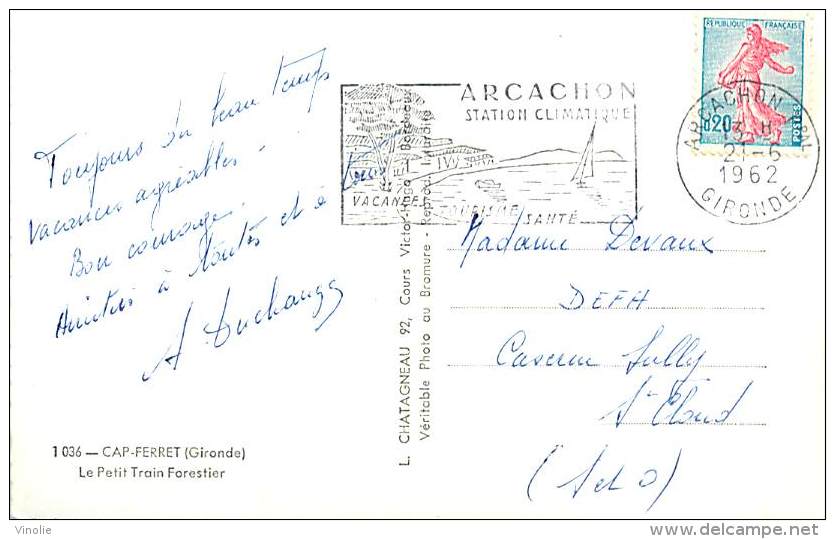 Toujours du beau temps
Vacances agréables.
Bon courage.
Amitiés à toutes et à tous
A Duchange
1 036 — CAP-FERRET (Gironde)
Le Petit Train Forestier
L. CHATAGNEAU 92, Cours Victor-Hugo Bordeaux
Véritable Photo au Bromure - Reprod. Interdite
ARCACHON
STATION CLIMATIQUE
VACANCES
TOURISME
SANTÉ
REPUBLIQUE FRANÇAISE
0,20
POSTES
ARCACHON PAL
13 H
21-6
1962
GIRONDE
Madame Devaux
DEFH
Caserne Sully
St Cloud
(S et O)
Vinolie
www.delcampe.net